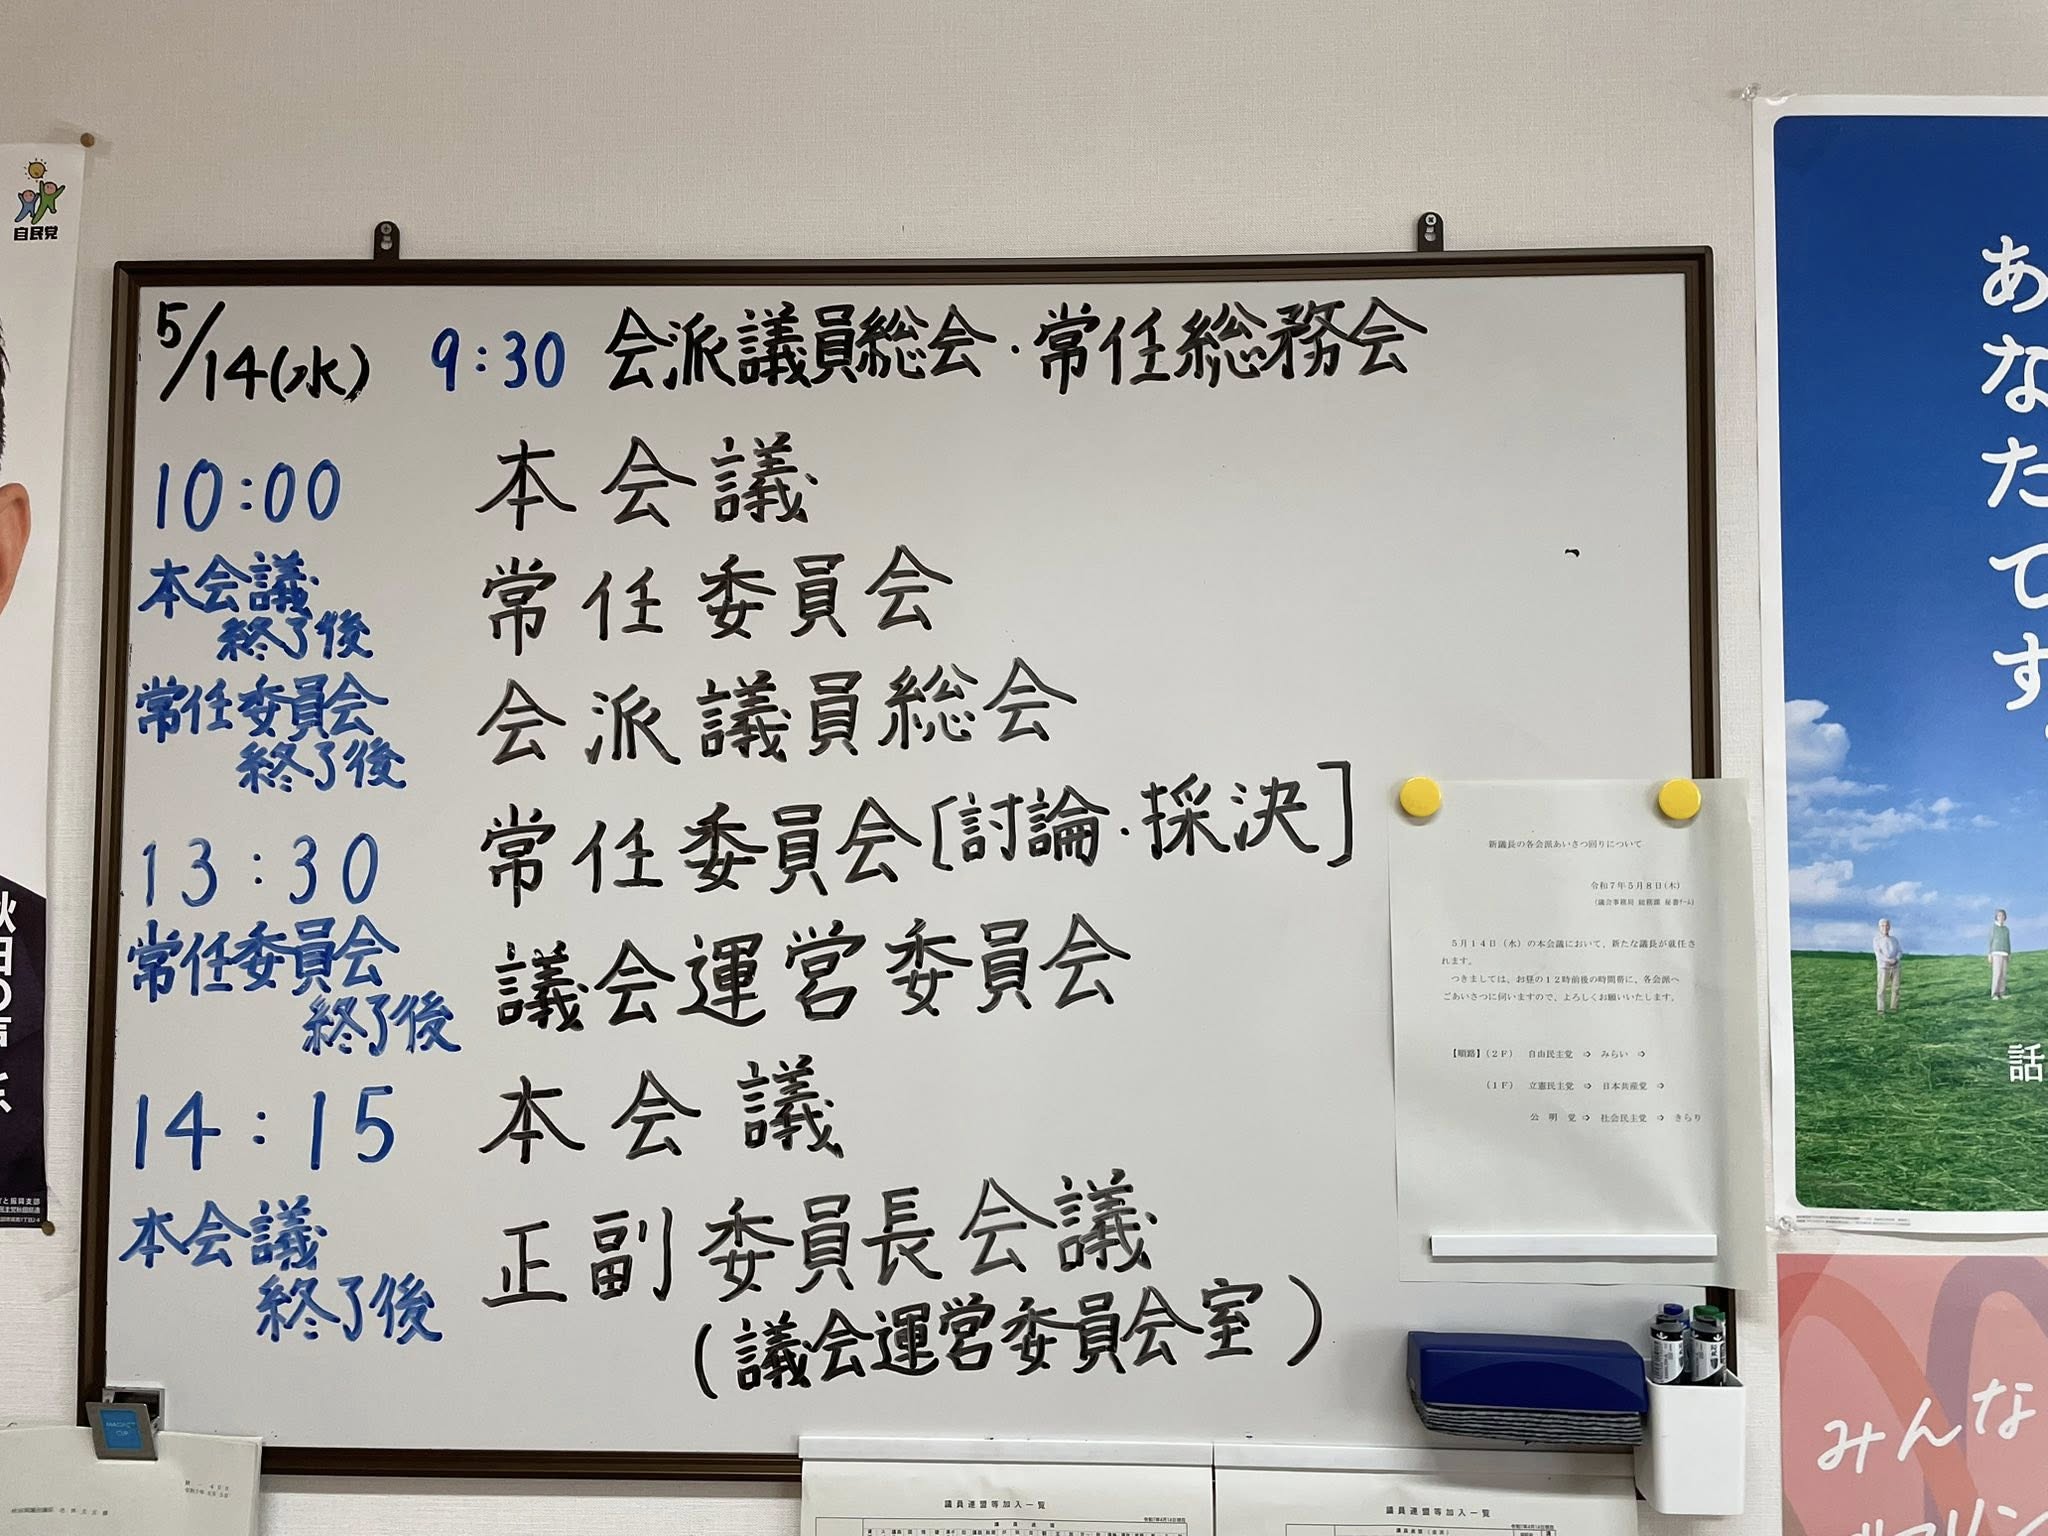 自民党
5/14(水) 9:30 会派議員総会・常任総務会
10:00 本会議
本会議終了後 常任委員会
常任委員会終了後 会派議員総会
13:30 常任委員会[討論・採決]
常任委員会終了後 議会運営委員会
14:15 本会議
本会議終了後 正副委員長会議
(議会運営委員会室)
新議長の各会派あいさつ回りについて
令和7年5月8日(木)
(議会事務局 総務課 秘書ﾁｰﾑ)
5月14日(水)の本会議において、新たな議長が就任さ
れます。
つきましては、お昼の12時前後の時間帯に、各会派へ
ごあいさつに伺いますので、よろしくお願いいたします。
【順路】(2F) 自由民主党 ⇒ みらい ⇒
(1F) 立憲民主党 ⇒ 日本共産党 ⇒
公明党 ⇒ 社会民主党 ⇒ きらり
あなたです
話
みんな
秋田の声
議員連盟等加入一覧
議員連盟等加入一覧